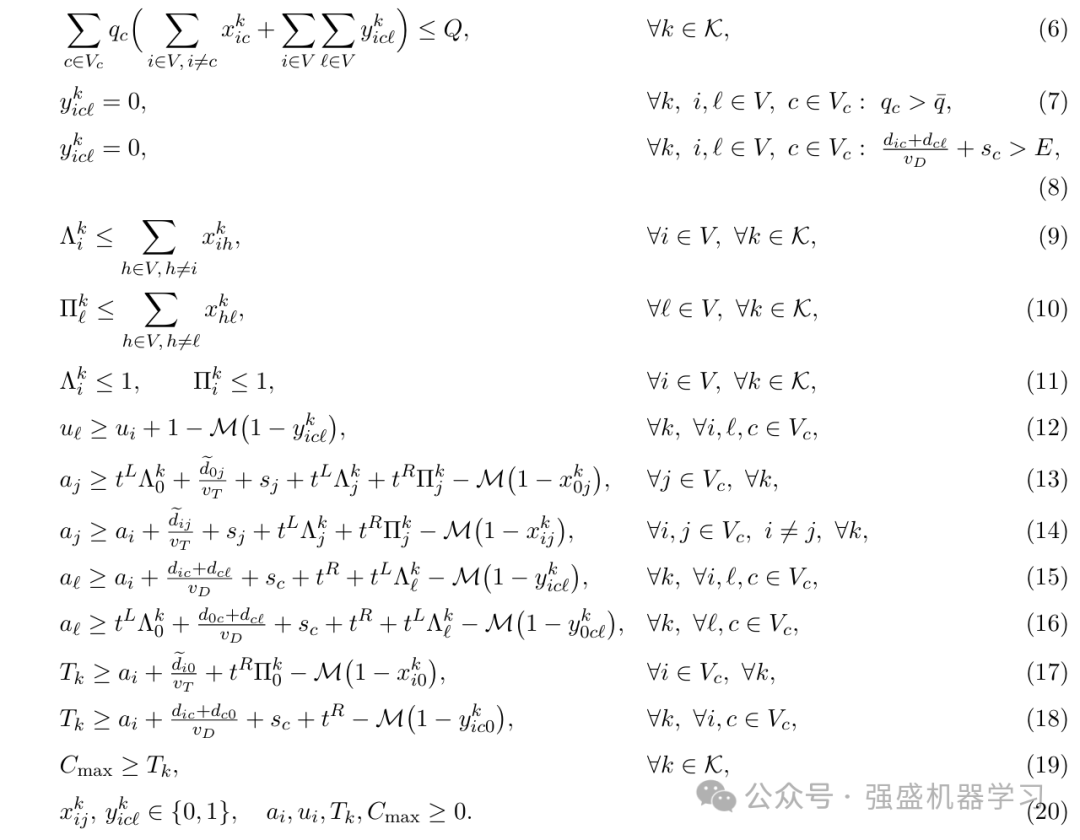 $\sum_{c\in V_c} q_c\Big(\sum_{i\in V,\, i\neq c} x_{ic}^k + \sum_{i\in V}\sum_{\ell\in V} y_{ic\ell}^k\Big) \leq Q, \quad \forall k\in\mathcal{K}, \quad (6)$
$y_{ic\ell}^k = 0, \quad \forall k,\ i,\ell\in V,\ c\in V_c:\ q_c > \bar{q}, \quad (7)$
$y_{ic\ell}^k = 0, \quad \forall k,\ i,\ell\in V,\ c\in V_c:\ \frac{d_{ic}+d_{c\ell}}{v_D} + s_c > E,$
$(8)$
$\Lambda_i^k \leq \sum_{h\in V,\, h\neq i} x_{ih}^k, \quad \forall i\in V,\ \forall k\in\mathcal{K}, \quad (9)$
$\Pi_\ell^k \leq \sum_{h\in V,\, h\neq \ell} x_{h\ell}^k, \quad \forall \ell\in V,\ \forall k\in\mathcal{K}, \quad (10)$
$\Lambda_i^k \leq 1, \quad \Pi_i^k \leq 1, \quad \forall i\in V,\ \forall k\in\mathcal{K}, \quad (11)$
$u_\ell \geq u_i + 1 - \mathcal{M}(1 - y_{ic\ell}^k), \quad \forall k,\ \forall i,\ell,c\in V_c, \quad (12)$
$a_j \geq t^L\Lambda_0^k + \frac{\widetilde{d}_{0j}}{v_T} + s_j + t^L\Lambda_j^k + t^R\Pi_j^k - \mathcal{M}(1 - x_{0j}^k), \quad \forall j\in V_c,\ \forall k, \quad (13)$
$a_j \geq a_i + \frac{\widetilde{d}_{ij}}{v_T} + s_j + t^L\Lambda_j^k + t^R\Pi_j^k - \mathcal{M}(1 - x_{ij}^k), \quad \forall i,j\in V_c,\ i\neq j,\ \forall k, \quad (14)$
$a_\ell \geq a_i + \frac{d_{ic}+d_{c\ell}}{v_D} + s_c + t^R + t^L\Lambda_\ell^k - \mathcal{M}(1 - y_{ic\ell}^k), \quad \forall k,\ \forall i,\ell,c\in V_c, \quad (15)$
$a_\ell \geq t^L\Lambda_0^k + \frac{d_{0c}+d_{c\ell}}{v_D} + s_c + t^R + t^L\Lambda_\ell^k - \mathcal{M}(1 - y_{0c\ell}^k), \quad \forall k,\ \forall \ell,c\in V_c, \quad (16)$
$T_k \geq a_i + \frac{\widetilde{d}_{i0}}{v_T} + t^R\Pi_0^k - \mathcal{M}(1 - x_{i0}^k), \quad \forall i\in V_c,\ \forall k, \quad (17)$
$T_k \geq a_i + \frac{d_{ic}+d_{c0}}{v_D} + s_c + t^R - \mathcal{M}(1 - y_{ic0}^k), \quad \forall k,\ \forall i,c\in V_c, \quad (18)$
$C_{\max} \geq T_k, \quad \forall k\in\mathcal{K}, \quad (19)$
$x_{ij}^k,\, y_{ic\ell}^k \in \{0,1\}, \quad a_i, u_i, T_k, C_{\max} \geq 0. \quad (20)$
公众号 · 强盛机器学习